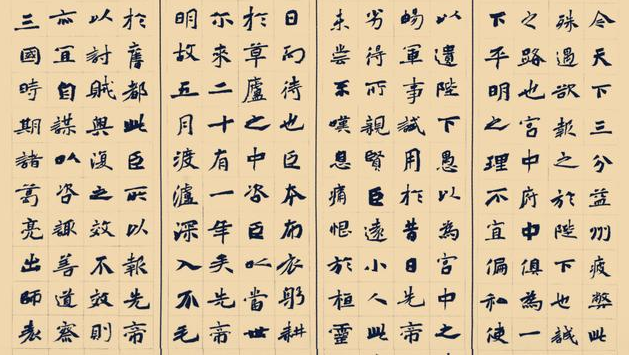 今天下三分益州疲弊此
殊遇欲報之於陛下也誠
之路也宮中府中俱為一
下平明之理不宜偏私使
以遺陛下愚以為宮中之
暢軍事試用於昔日先帝
劣得所親賢臣遠小人此
未嘗不嘆息痛恨於桓靈
日而待也臣本布衣躬耕
於草廬之中咨臣以當世
尔來二十有一年矣先帝
明故五月渡瀘深入不毛
於舊都此臣所以報先帝
以討賊興復之效不效則
亦宜自謀以咨諏善道察
三國時期諸葛亮出師表